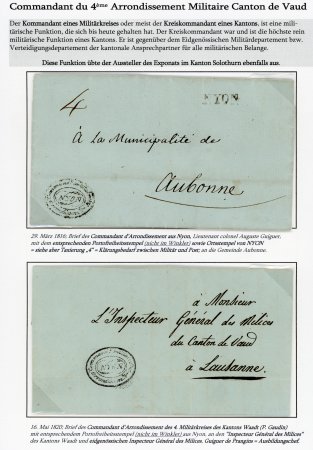 Commandant du 4ème Arrondissement Militaire Canton de Vaud
Der Kommandant eines Militärkreises oder meist der Kreiskommandant eines Kantons, ist eine mili-
tärische Funktion, die sich bis heute gehalten hat. Der Kreiskommandant war und ist die höchste rein
militärische Funktion eines Kantons. Er ist gegenüber dem Eidgenössischen Militärdepartement bzw.
Verteidigungsdepartement der kantonale Ansprechpartner für alle militärischen Belange.
Diese Funktion übte der Aussteller des Exponats im Kanton Solothurn ebenfalls aus.
4
NYON
À la Municipalité de
Aubonne
NYON
29. März 1816; Brief des Commandant d'Arrondissement aus Nyon, Lieutenant colonel Auguste Guiguer,
mit dem entsprechenden Portofreiheitsstempel (nicht im Winkler) sowie Ortsstempel von NYON
= siehe aber Taxierung „4" = Klärungsbedarf zwischen Militär und Post, an die Gemeinde Aubonne.
à Monsieur
L'Inspecteur Général des Milices
du Canton de Vaud
à Lausanne.
NYON
16. Mai 1820; Brief des Commandant d'Arrondissement des 4. Militärkreises des Kantons Waadt (P. Gaudin)
mit entsprechendem Portofreiheitsstempel (nicht im Winkler) aus Nyon, an den "Inspecteur Général des Milices"
des Kantons Waadt und eidgenössischen Inspecteur des Milices. Guiguer de Prangins = Ausbildungschef.